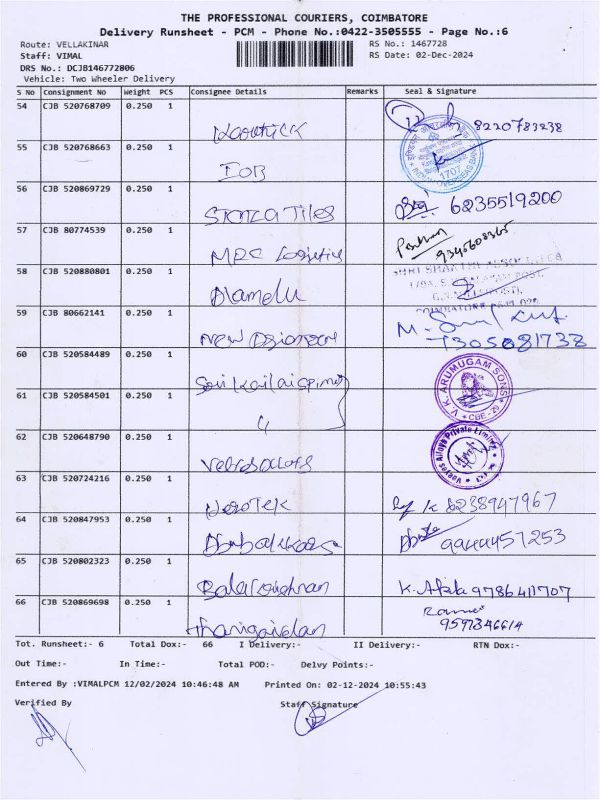 THE PROFESSIONAL COURIERS, COIMBATORE
Delivery Runsheet - PCM - Phone No.:0422-3505555 - Page No.:6
Route: VELLAKINAR RS No.: 1467728
Staff: VIMAL RS Date: 02-Dec-2024
DRS No.: DCJB146772806
Vehicle: Two Wheeler Delivery
S No Consignment No Weight PCS Consignee Details Remarks Seal & Signature
54 CJB 520768709 0.250 1 8220783238
55 CJB 520768663 0.250 1 IOB 1707
56 CJB 520869729 0.250 1 Stanza Tiles 6235519200
57 CJB 80774539 0.250 1 MRC Logistics
58 CJB 520880801 0.250 1 Alamelu
59 CJB 80662141 0.250 1 New 7305081738
60 CJB 520584489 0.250 1 V.K. ARUMUGAM SONS CBE-29
61 CJB 520584501 0.250 1
62 CJB 520648790 0.250 1 Alloys Private Limited
63 CJB 520724216 0.250 1 8238947967
64 CJB 520847953 0.250 1 9944457253
65 CJB 520802323 0.250 1 9786411707
66 CJB 520869698 0.250 1
Tot. Runsheet:- 6 Total Dox:- 66 I Delivery:- II Delivery:- RTN Dox:-
Out Time:- In Time:- Total POD:- Delvy Points:-
Entered By :VIMALPCM 12/02/2024 10:46:48 AM Printed On: 02-12-2024 10:55:43
Verified By Staff Signature